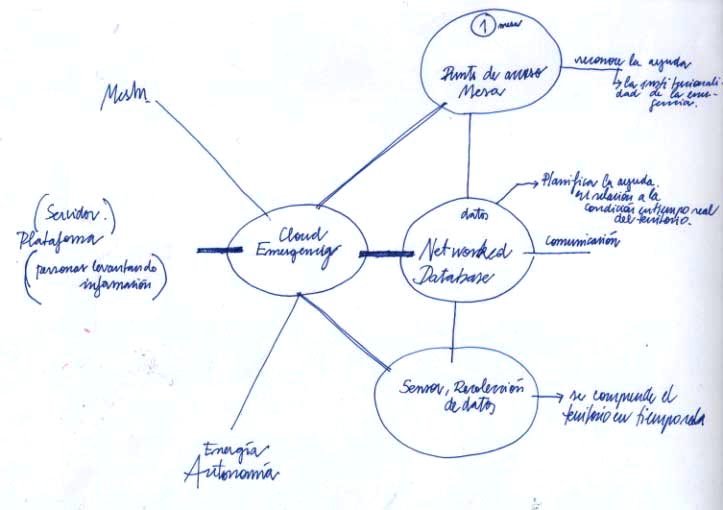 1 mesa
Punto de acceso
Mesa
reconoce la ayuda
la institucionali-
dad de la emer-
gencia.
Mesh
(Servidor.)
Plataforma
(personas levantando
información)
Cloud
Emergency
datos
Networked
Database
Planificar la ayuda.
en relación a la
condición en tiempo real
del territorio.
comunicación
Sensor, Recolección
de datos
se comprende el
territorio en tiempo real
Energía
Autonomía